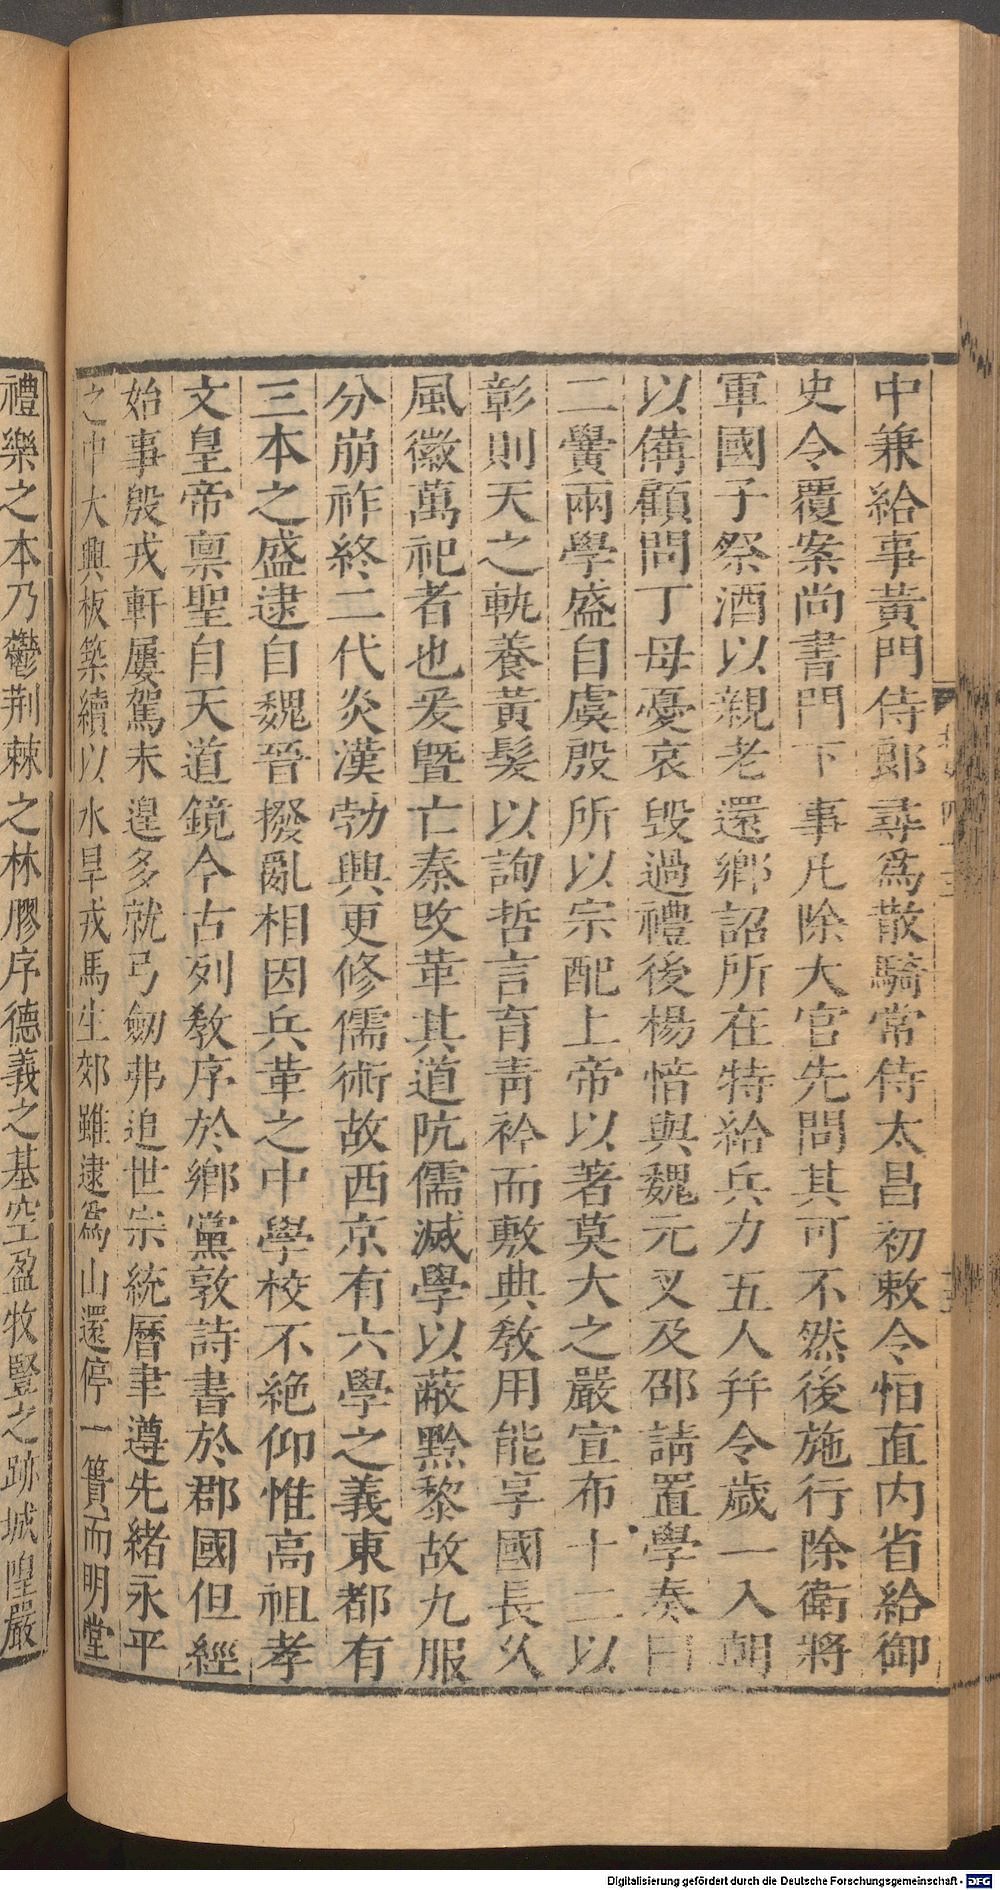 中兼給事黃門侍郎尋爲散騎常侍太昌初敕令怕直内省給御
史令覆案尚書門下事凡除大官先問其可不然後施行除衛將
軍國子祭酒以親老還鄉詔所在特給兵力五人幷令歲一入朝
以備顧問丁母憂哀毀過禮後楊愔與魏元叉及邵請置學奏曰
二黌兩學盛自虞殷所以宗配上帝以著莫大之嚴宣布十二以
彰則天之軌養黃髮以詢哲言育靑衿而敷典敎用能享國長久
風徽萬祀者也爰曁亡秦攺革其道阬儒滅學以蔽黔黎故九服
分崩祚終二代炎漢勃興更修儒術故西京有六學之義東都有
三本之盛逮自魏晉撥亂相因兵革之中學校不絶仰惟高祖孝
文皇帝禀聖自天道鏡今古列敎序於鄉黨敦詩書於郡國但經
始事殷戎軒屢駕未遑多就弓劒弗追世宗統曆聿遵先緒永平
之中大興板築續以水旱戎馬生郊雖逮爲山還停一簣而明堂
禮樂之本乃鬱荆棘之林膠序德義之基空盈牧豎之跡城隍嚴
Digitalisierung gefördert durch die Deutsche Forschungsgemeinschaft - DFG